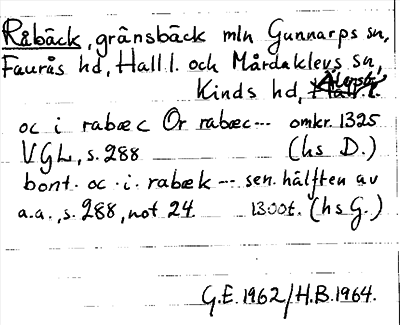 Råbäck, gränsbäck mln Gunnarps sn,
Faurås hd, Hall l. och Mårdaklevs sn,
Kinds hd, Älvsb
oc i rabæc Or rabæc--- omkr. 1325
VGL, s. 288 (hs D.)
bont. oc. i. rabæk --- sen. hälften av
a.a., s. 288, not 24. 1300t. (hs G.)
G.E. 1962/H.B. 1964.